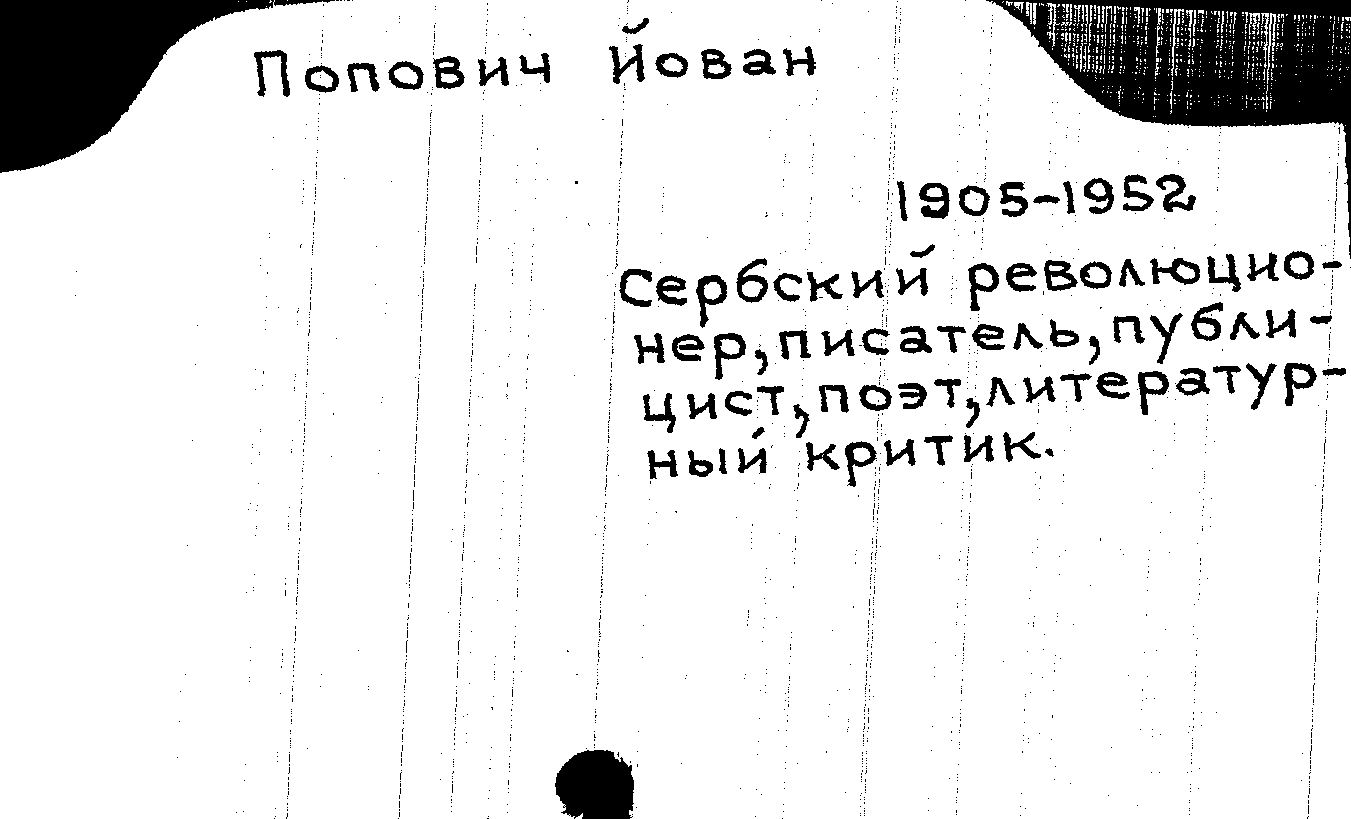 Попович Йован
1905-1952
Сербский революцио-
нер, писатель, публи-
цист, поэт, литератур-
ный критик.